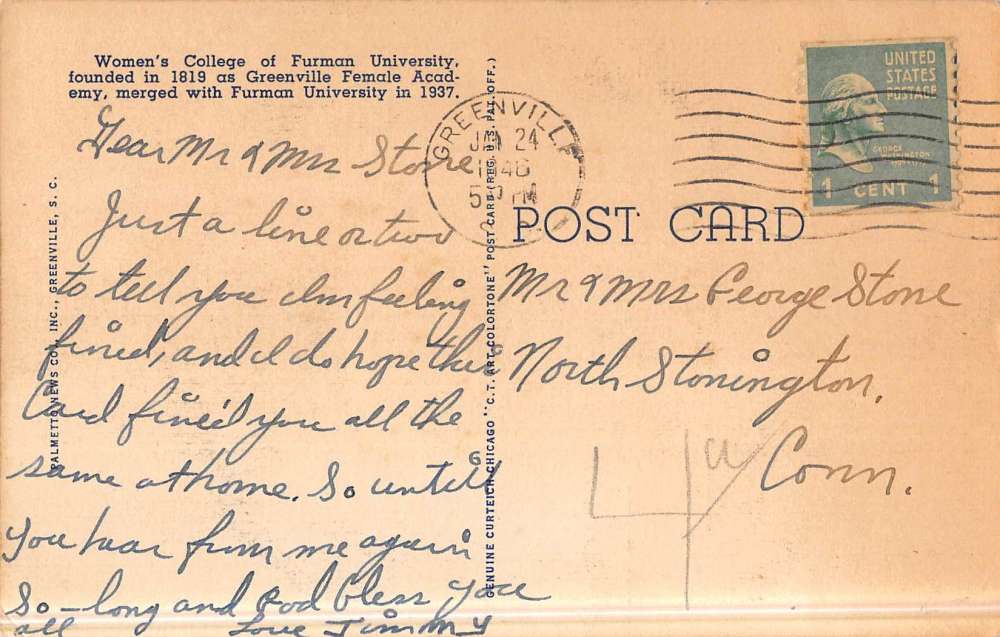 Women's College of Furman University,
founded in 1819 as Greenville Female Acad-
emy, merged with Furman University in 1937.
Dear Mr & Mrs Stone
Just a line or two
to tell you I'm feeling
fined, and I do hope this
Card fine'd you all the
same at home. So until
you hear from me again
So-long and God bless you
all Love Jimmy
PALMETTO NEWS CO., INC., GREENVILLE, S. C.
GENUINE CURTEICH-CHICAGO "C. T. ART-COLORTONE" POST CARD (REG. U. S. PAT. OFF.)
GREENVILLE
24
PM
UNITED
STATES
POSTAGE
GEORGE
WASHINGTON
1 CENT 1
POST CARD
Mr & Mrs George Stone
North Stonington,
Conn.
4